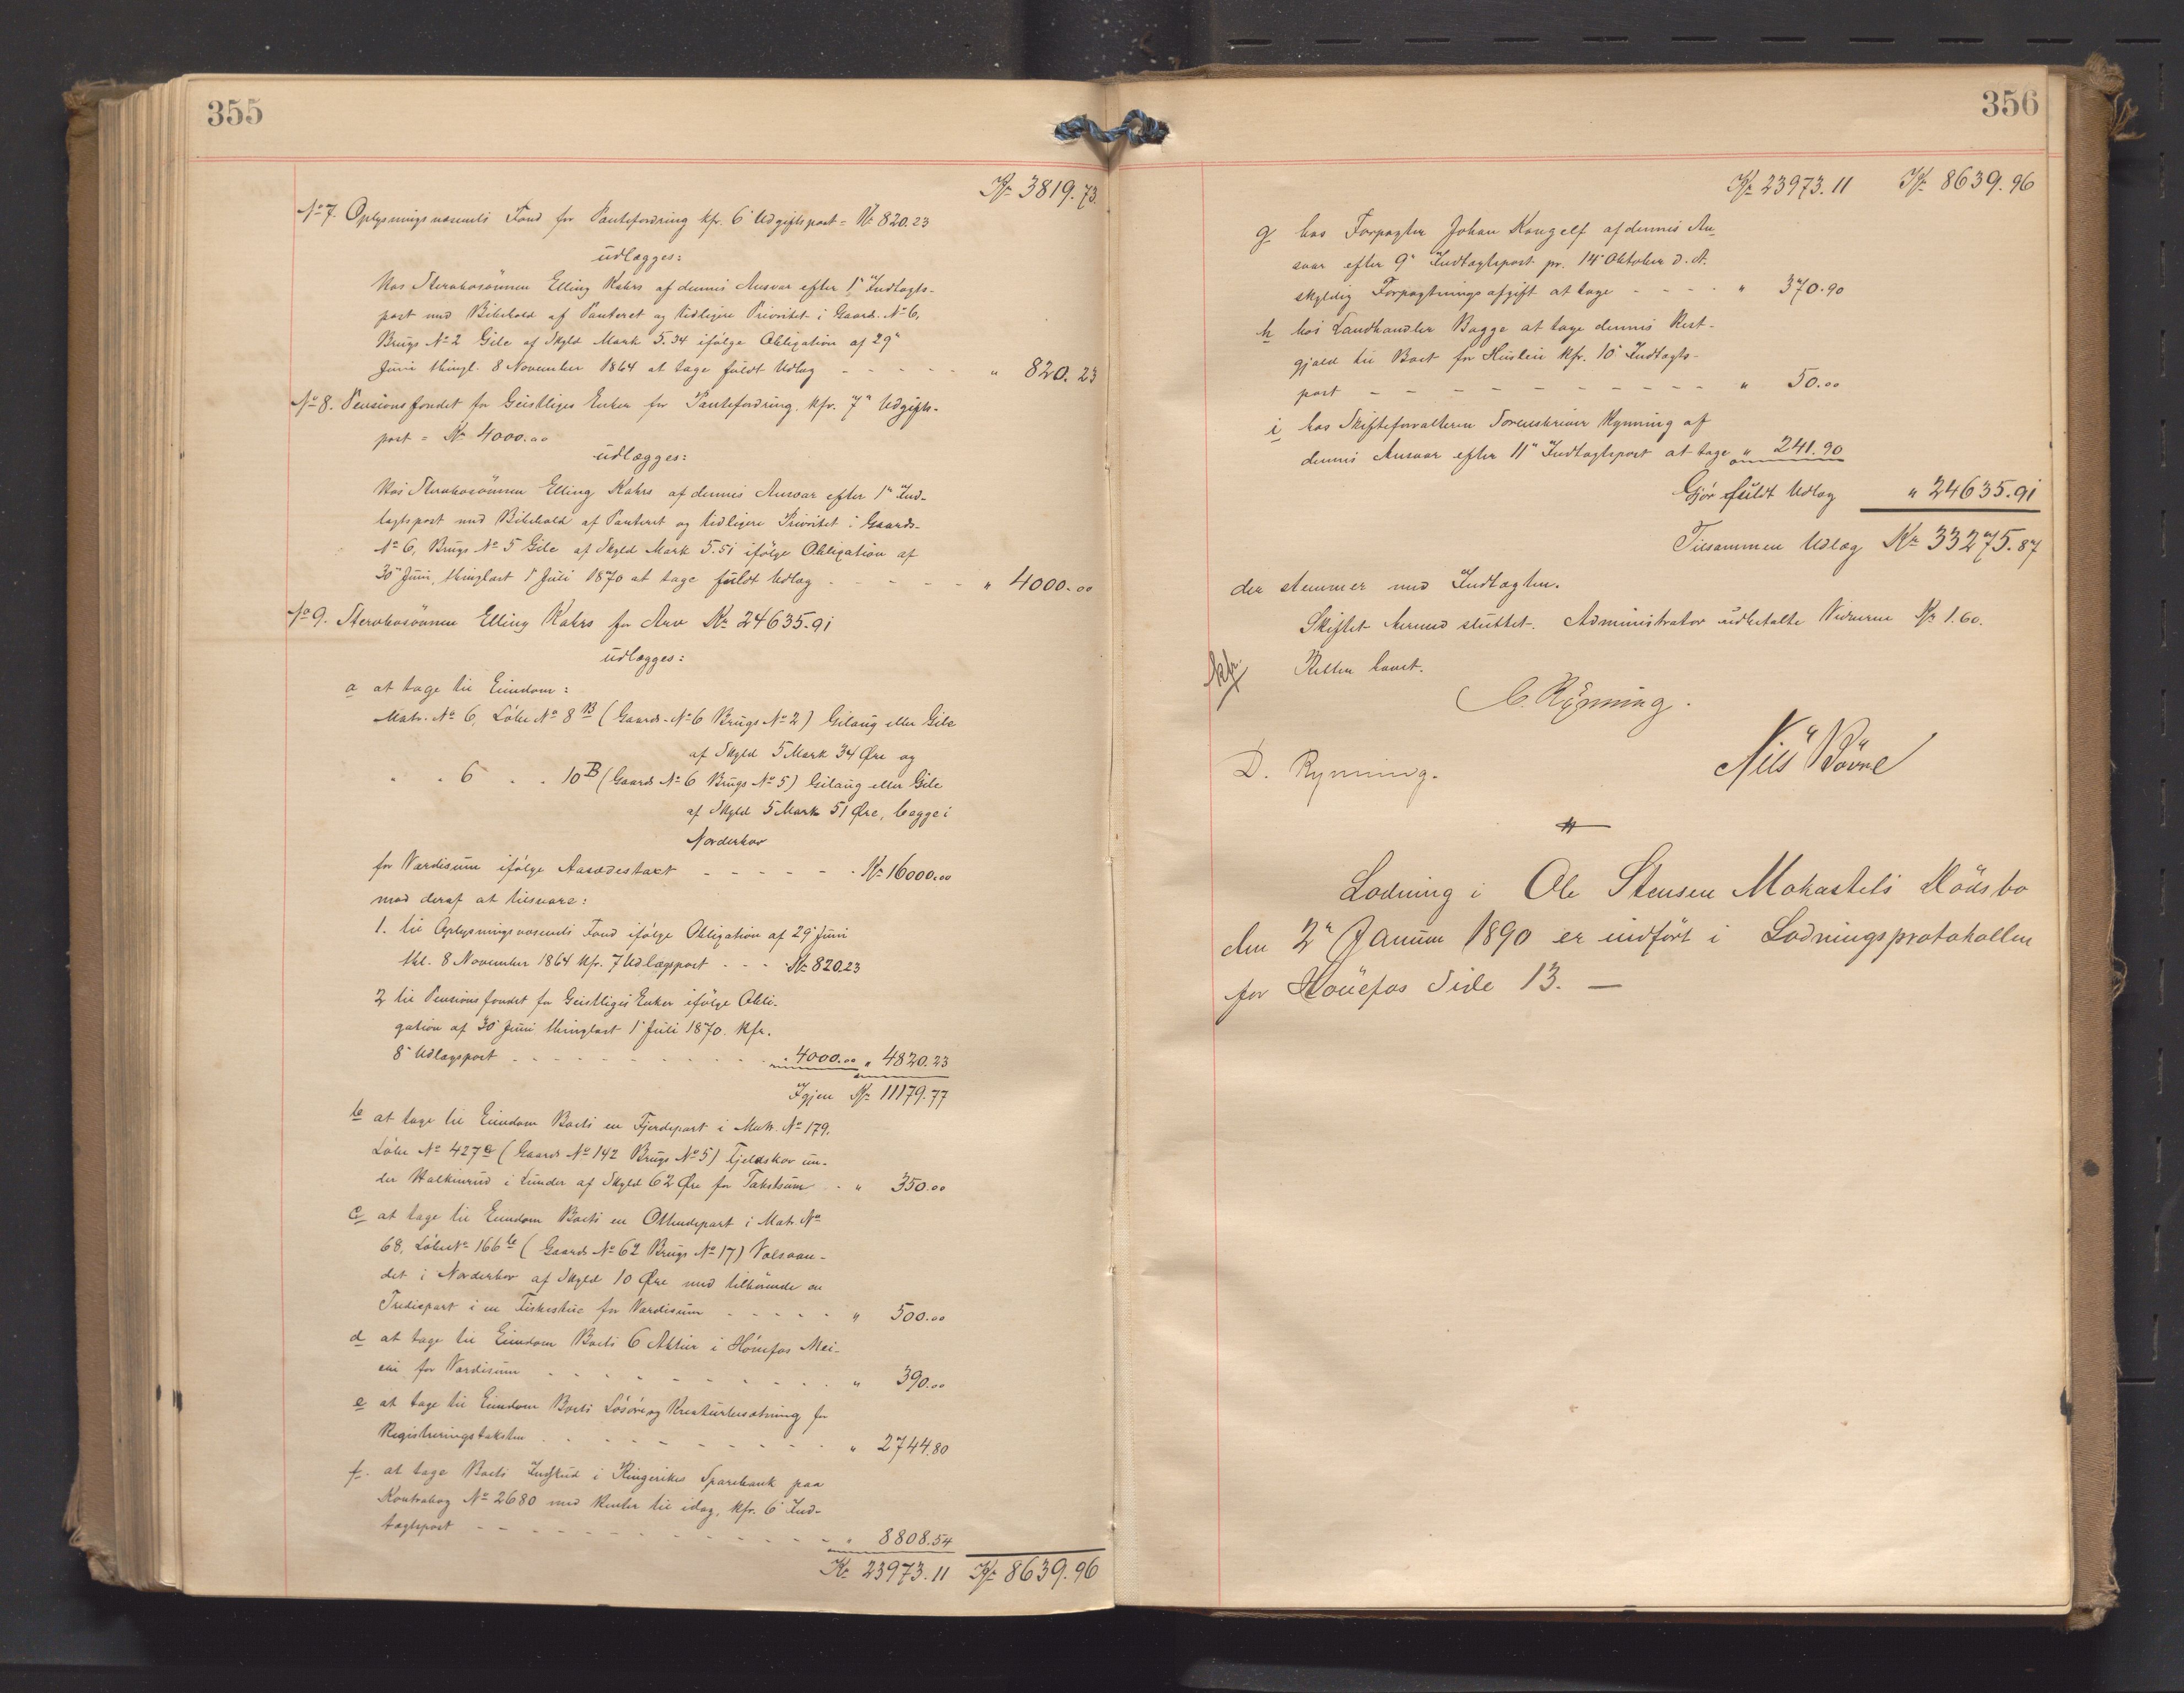 355
Kr 3819.73.
No 7. Oplysningsvæsenets Fond for Pantefordring kfr. 6" Udgiftspost = Kr 820.23
udlægges:
Hos Stervbosønnen Elling Kahrs af dennes Ansvar efter 1" Indtægts-
post med Bibehold af Panteret og tidligere Prioritet i Gaards-No 6,
Brugs No 2 Gile af Skyld Mark 5.34 ifølge Obligation af 29"
Juni thingl. 8 November 1864 at tage fuldt Udlæg - - - - - " 820.23
No 8. Pensionsfondet for Geistliges Enker for Pantefordring, kfr. 7" Udgifts-
post = Kr 4000.00
udlægges:
Hos Stervbosønnen Elling Kahrs af dennes Ansvar efter 1" Ind-
tægtspost med Bibehold af Panteret og tidligere Prioritet i Gaards-
No 6, Brugs No 5 Gile af Skyld Mark 5.51 ifølge Obligation af
30" Juni, thinglæst 1" Juli 1870 at tage fuldt Udlæg - - - - - " 4000.00
No 9. Stervbosønnen Elling Kahrs for Arv Kr 24635.91
udlægges:
a at tage til Eiendom:
Matr. No 6, Løbe No 8 B (Gaards-No 6 Brugs No 2) Gilaug eller Gile
af Skyld 5 Mark 34 Øre og
" " 6 " " 10 B (Gaards No 6 Brugs No 5) Gilaug eller Gile
af Skyld 5 Mark 51 Øre, begge i
Norderhov
for Værdisum ifølge Aasædestaxt - - - - - - Kr 16000.00
mod deraf at tilsvare:
1. til Oplysningsvæsenets Fond ifølge Obligation af 29" Juni
thl. 8 November 1864 kfr. 7 Udlægspost - - - Kr 820.23
2 til Pensionsfondet for Geistliges Enker ifølge Obli-
gation af 30" Juni thinglæst 1" Juli 1870. kfr.
8" Udlægspost - - - - - - - - - - " 4000.00 " 4820.23
Igjen Kr 11179.77
b at tage til Eiendom Boets en Fjerdepart i Matr. No 179,
Løbe No 427 a (Gaards No 142 Brugs No 5) Fjeldskov un-
der Valkinrud i Lunder af Skyld 62 Øre for Takstsum - " 350.00
c at tage til Eiendom Boets en Ottendepart i Matr. No
68, Løbe No 166 b (Gaards No 62 Brugs No 17) Vælsvan-
det i Norderhov af Skyld 10 Øre med tilhørende en
Trediepart i en Fiskeshue for Værdisum - - - - - " 500.00
d at tage til Eiendom Boets 6 Aktier i Hønefos Mei-
eri for Værdisum - - - - - - - - - - " 390.00
e at tage til Eiendom Boets Løsøre og Kreaturbesætning for
Registreringstaksten - - - - - - - - - - " 2744.80
f. at tage Boets Indskud i Ringerikes Sparebank paa
Kontrabog No 2680 med Renter til idag, kfr. 6" Ind-
tægtspost - - - - - - - - - - - - - " 8808.54
Kr 23973.11 Kr 8639.96
356
Kr 23973.11 Kr 8639.96
g hos Forpagter Johan Kongelf af dennes An-
svar efter 9" Indtægtspost pr. 14" Oktober d. A.
skyldig Forpagtningsafgift at tage - - - - " 370.90
h hos Landhandler Bagge at tage dennes Rest-
gjæld til Boet for Husleie kfr. 10" Indtægts-
post - - - - - - - - - - - - " 50.00
i hos Skifteforvalteren Sorenskriver Rynning af
dennes Ansvar efter 11" Indtægtspost at tage " 241.90
Gjør fuldt Udlæg " 24635.91
Tilsammen Udlæg Kr 33275.87
der stemmer med Indtægten.
Skiftet hermed sluttet. Administrator udbetalte Vidnerne Kr 1.60.
Retten hævet.
C. Rynning.
D. Rynning.
Nils
Lodning i Ole Stensen Mokastets Dødsbo
den 2" Januar 1890 er indført i Lodningsprotokollen
for Hønefos Side 13. —